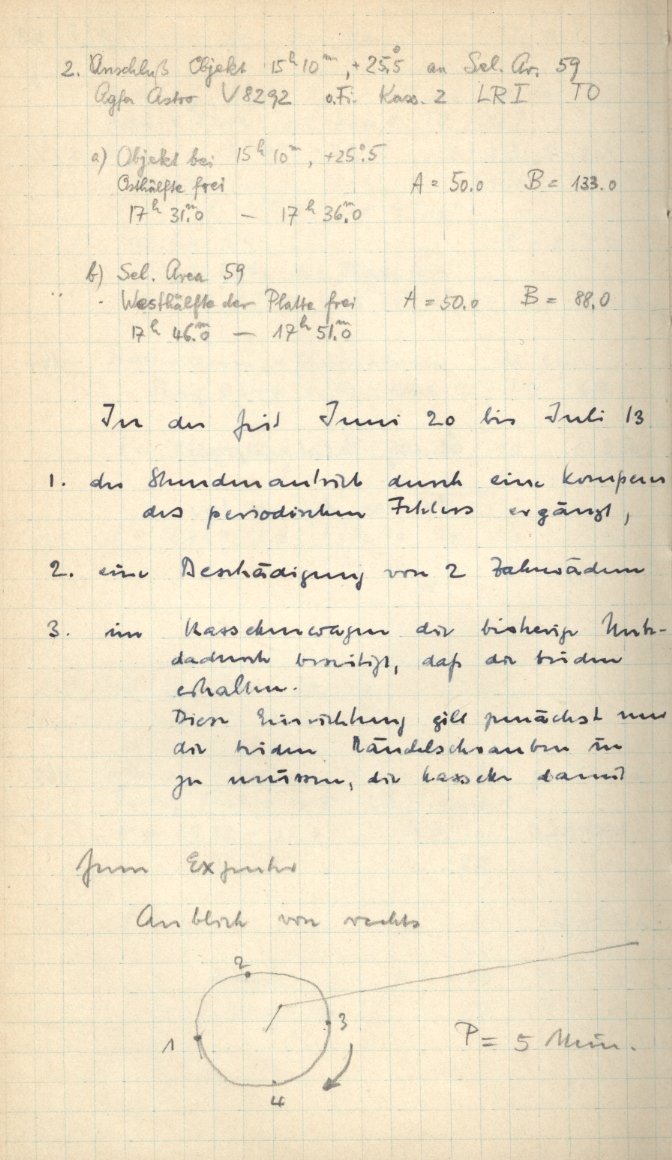 2. Anschluß Objekt 15ʰ10ᵐ, +25°.5 an Sel. Ar. 59
Agfa Astro V8292 o.Fi. Kass. 2 LRI TO
a) Objekt bei 15ʰ10ᵐ, +25°.5
Osthälfte frei A = 50.0 B = 133.0
17ʰ 31ᵐ.0 — 17ʰ 36ᵐ.0
b) Sel. Area 59
Westhälfte der Platte frei A = 50.0 B = 88.0
17ʰ 46ᵐ.0 — 17ʰ 51ᵐ.0
In der Zeit Juni 20 bis Juli 13
1. der Stundenantrieb durch eine Kompens
des periodischen Fehlers ergänzt,
2. eine Beschädigung von 2 Zahnrädern
3. im Kassettenwagen die bisherige
dadurch beseitigt, daß die beiden
erhalten.
Diese Einrichtung gilt zunächst nur
die beiden Rändelschrauben in
zu müssen, die Kassette damit
Zum
Anblick von rechts
2
1
3
4
P = 5 Min.